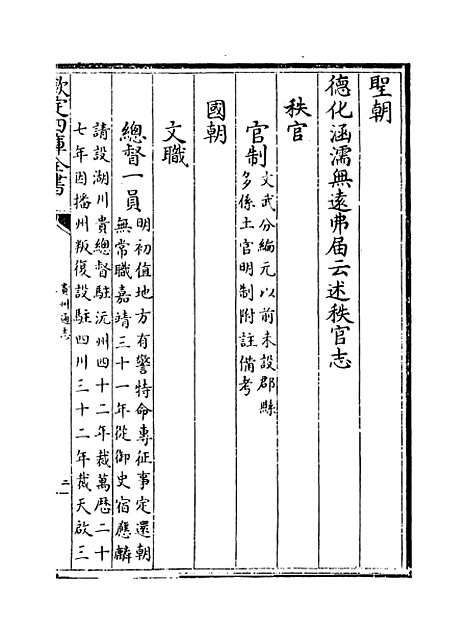 聖朝
德化涵濡無遠弗届云述秩官志
秩官
官制
文武分編元以前未設郡縣
多係土官明制附註備考
國朝
文職
總督一員
明初值地方有警特命專征事定還朝
無常職嘉靖三十一年從御史宿應麟
請設湖川貴總督駐沅州四十二年裁萬歴二十
七年因播州叛復設駐四川三十二年裁天啟三
欽定四庫全書
貴州通志
二